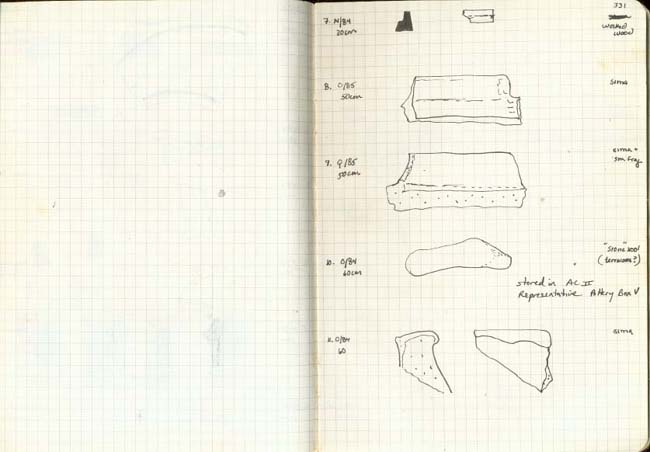 331
7. N/84
20cm
worked
wood
8. O/85
50cm
sima
9. Q/85
50cm
sima +
sm frag
10. O/84
60cm
"stone" tool
(terracotta?)
stored in AC II
Representative Pottery Box V
11. O/84
60
sima